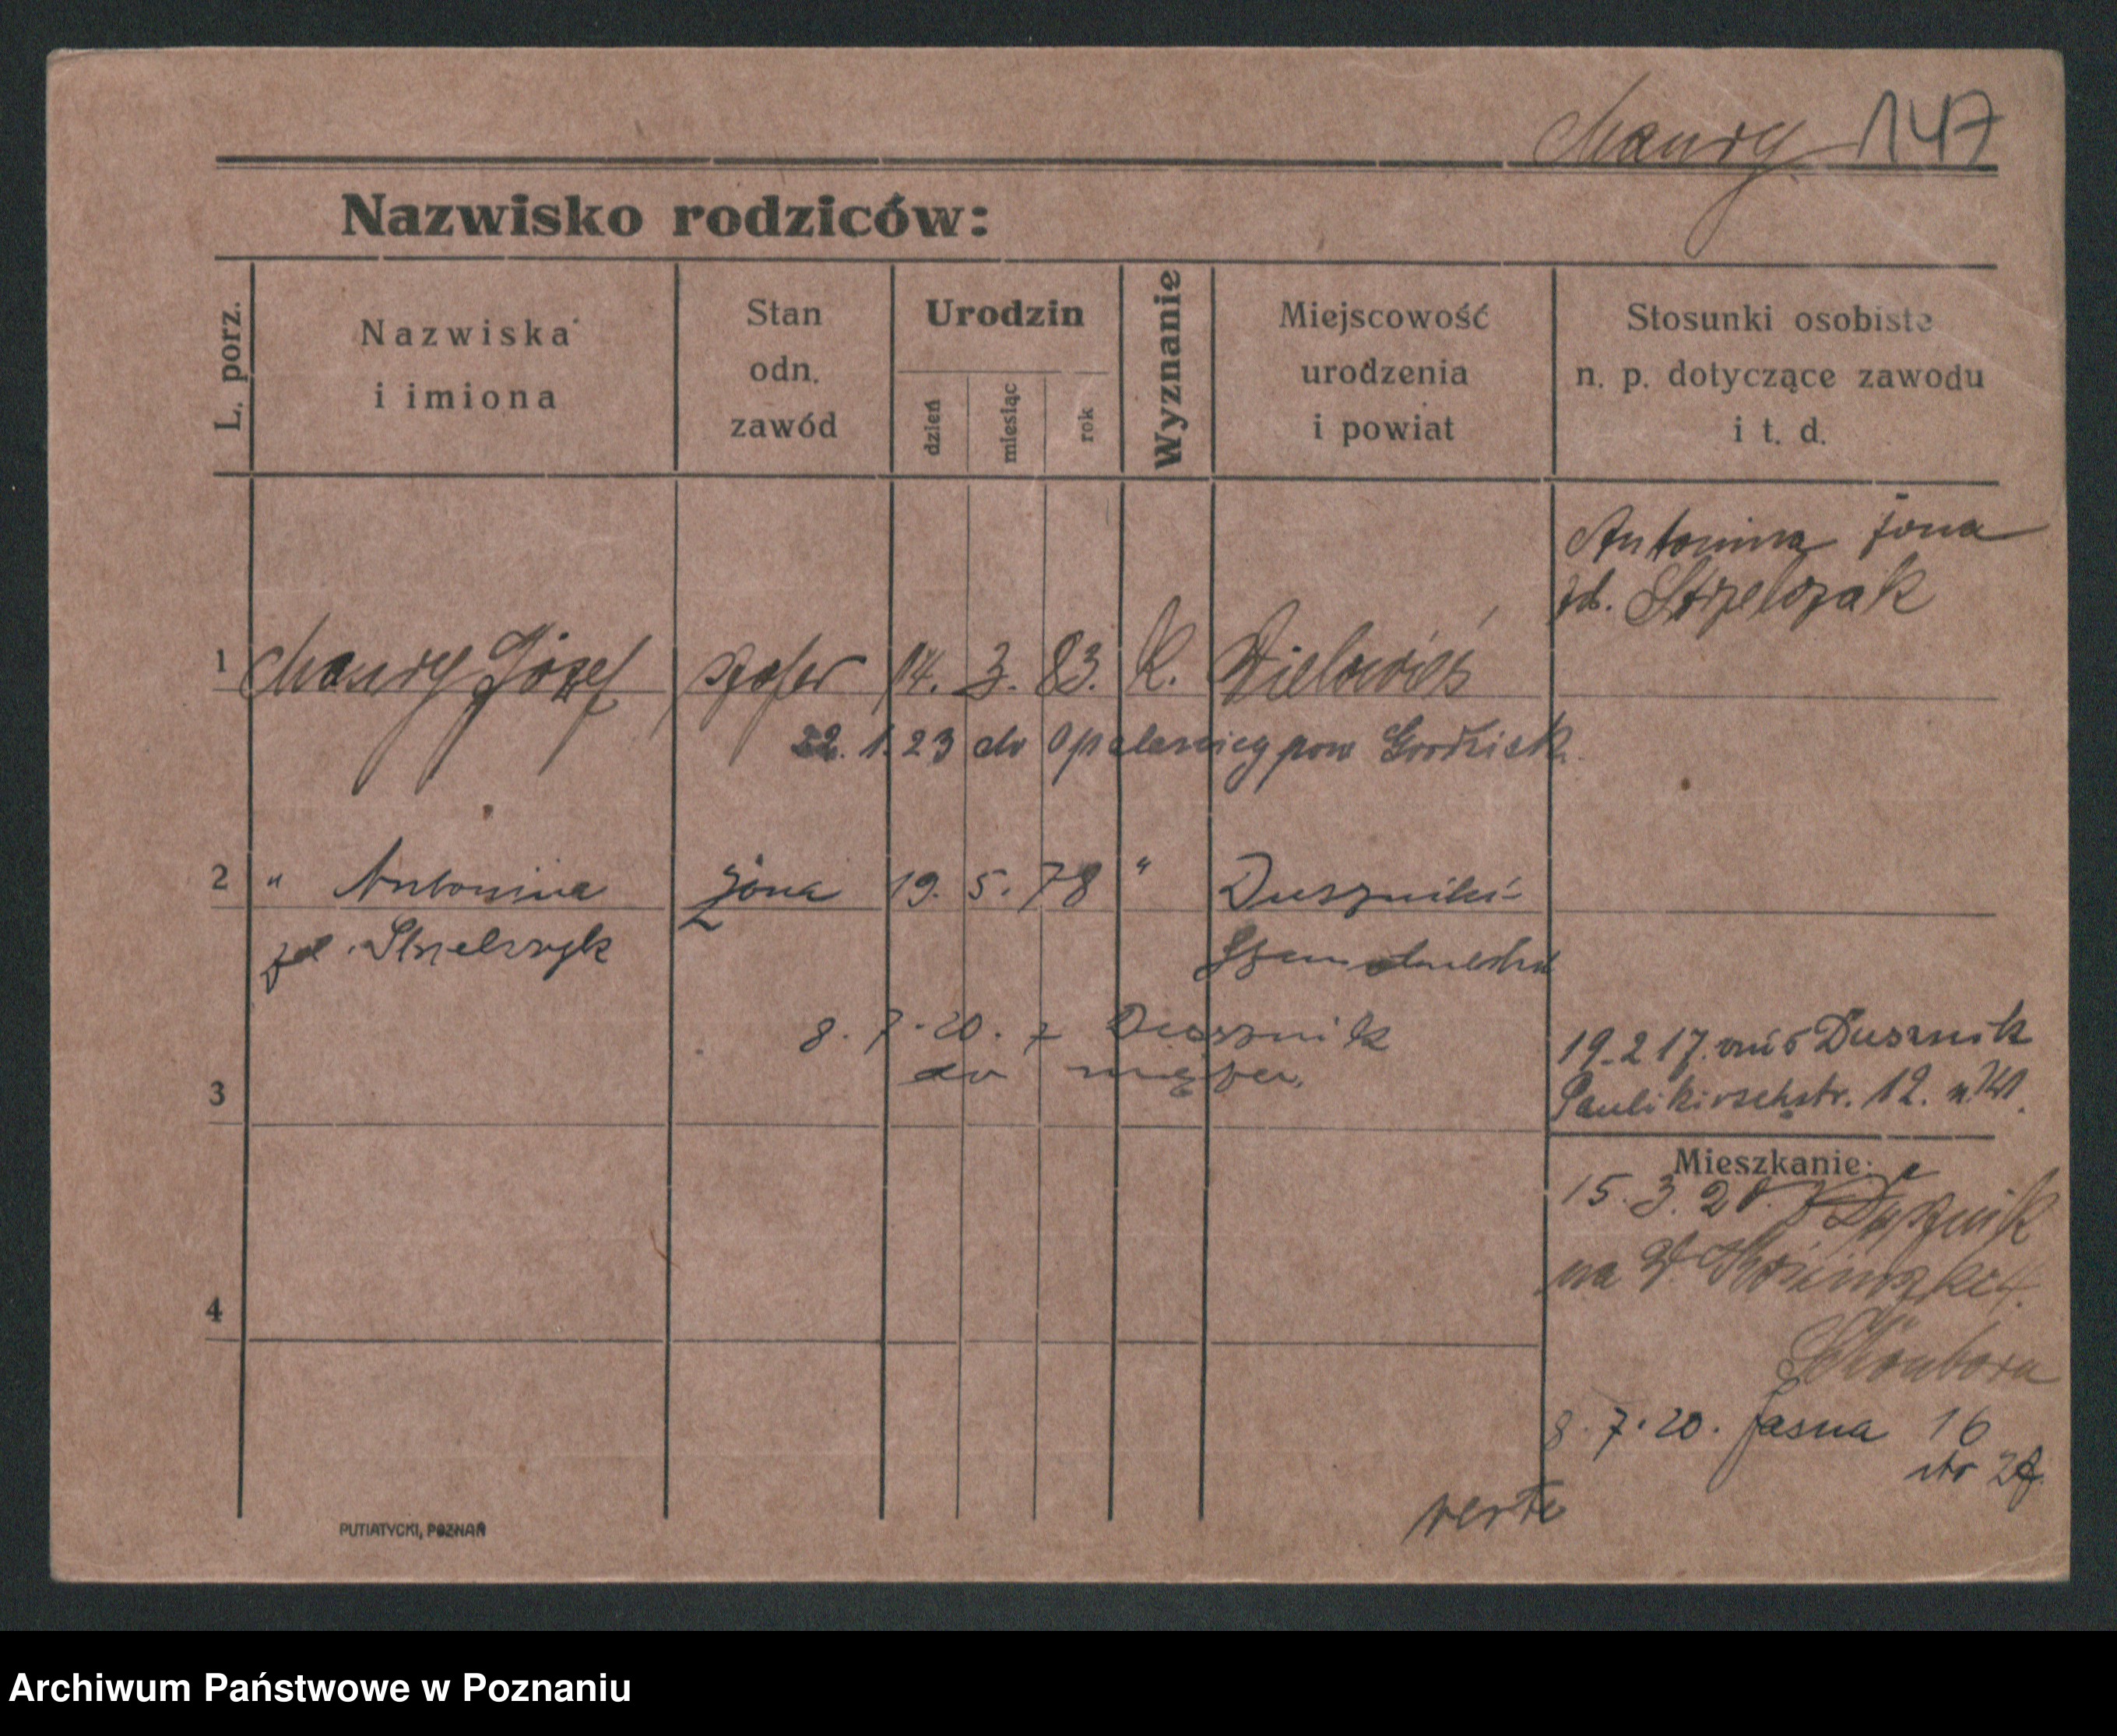 Maury 147
Nazwisko rodziców:
L. porz.
Nazwiska
i imiona
Stan
odn.
zawód
Urodzin
dzień
miesiąc
rok
Wyznanie
Miejscowość
urodzenia
i powiat
Stosunki osobiste
n. p. dotyczące zawodu
i t. d.
Antonina żona
zd. Strzelczak
1 Józef szofer 14. 3. 83. K.
22. 1. 23 do Opalenicy pow Grodzisk.
2 " Antonina żona 19. 5. 78 " Duszniki
Strzelczyk
8. 7. 20. z Dusznik
do męża
3
19.2 17. Dusznik
Paulikirchstr. 12.
Mieszkanie:
15. 3. 20. z Dusznik
na
Schönborn
8. 7. 20. Jasna 16
4
verte
PUTIATYCKI, POZNAŃ
Archiwum Państwowe w Poznaniu